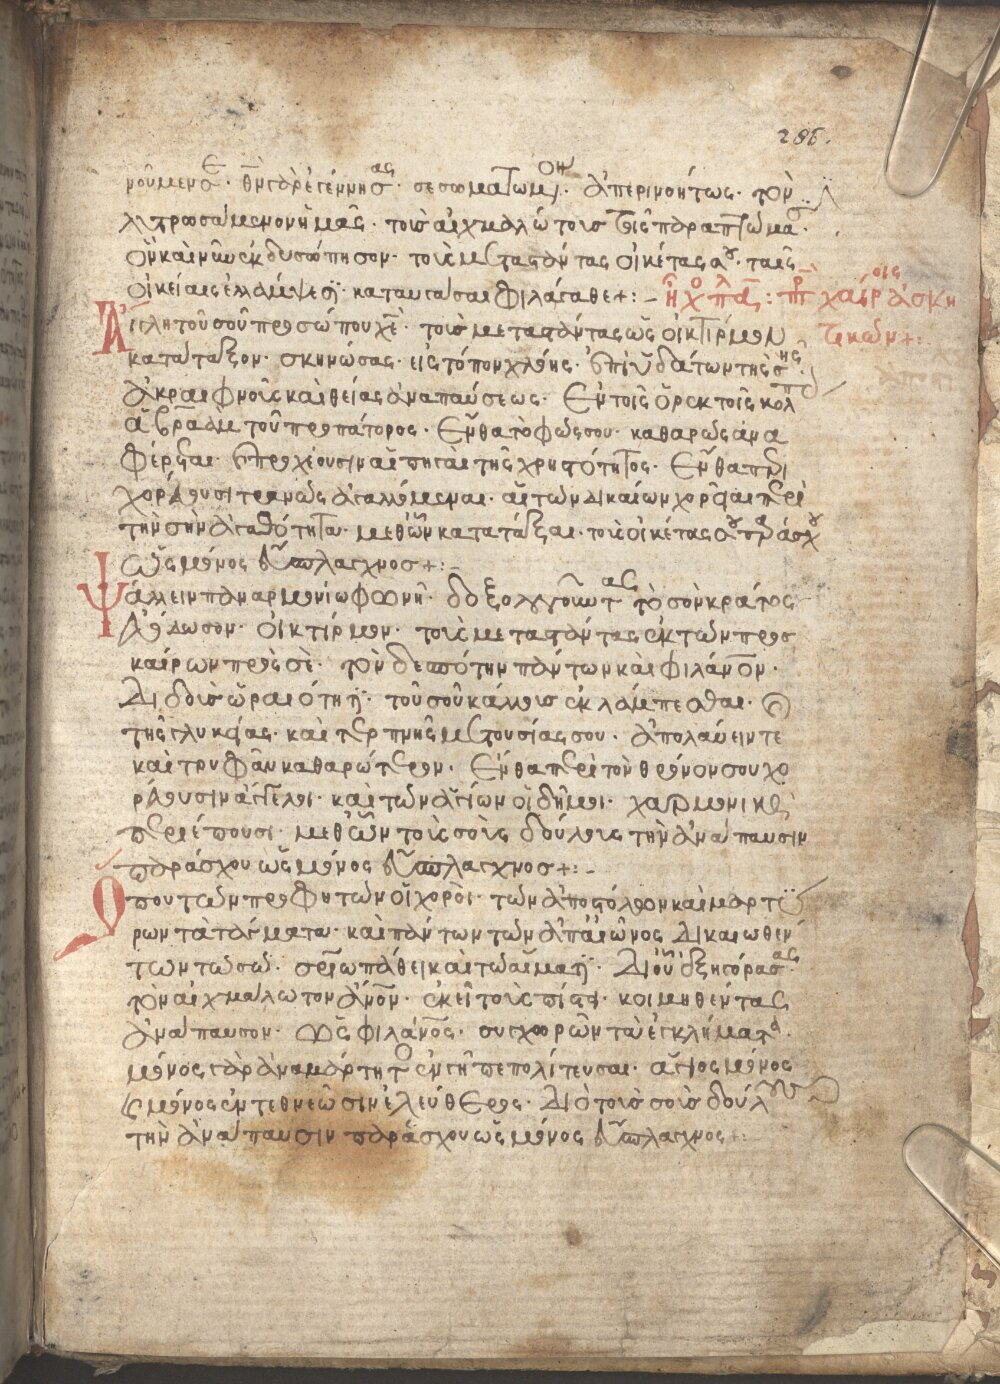 286.
νουμένου· θ̅ν̅ γὰρ ἐγέννησας· σεσωματωμένον· ἀπερινοήτως· τὸν
λυτρωσάμενον ἡμᾶς· τοὺς αἰχμαλώτους τοῖς πταραπτώμασι·
ὃν καὶ νῦν ἐκδυσώπησον· τοὺς μεταστάντας οἰκέτας σου· ταῖς
οἰκείαις ἐλλάμψεσι· καταυγάσαι φιλάγαθε+:–
Αἴγλῃ τοῦ σοῦ προσώπου χ̅ε̅· τοὺς μεταστάντας ὡς οἰκτίρμων
κατάταξον· σκηνώσας· εἰς τόπον χλόης· ἐπὶ ὑδάτων τῆς σῆς·
ἀκραιφνοῦς καὶ θείας ἀναπαύσεως· ἐν τοῖς ὀρεκτοῖς κόλποις
ἀβραὰμ τοῦ προπάτορος· ἔνθα τὸ φῶς σου· καθαρῶς ἀνα
φέρεται· προχέουσιν αἱ πηγαὶ τῆς χρηστότητος· ἔνθα περι
χορεύουσι τρανῶς ἀγαλλόμεναι· αἱ τῶν δικαίων χορεῖαι περὶ
τὴν σὴν ἀγαθότητα· μεθ' ὧν κατατάξαι· τοὺς οἰκέτας σου παράσχου
ὡς μόνος εὔσπλαγχνος+:–
Ψάλλειν παναρμονίῳ φωνῇ· δοξολογοῦντας τὸ σὸν κράτος
εὐόδωσον· οἰκτίρμον· τοὺς μεταστάντας ἐκ τῶν προσ
καίρων πρὸς σὲ· τὸν δεσπότην πάντων καὶ φιλάν̅ο̅ν̅·
δίδου ὡραιότητι· τοῦ σοῦ κάλλους ἐκλάμπεσθαι·
τῆς γλυκείας· καὶ τερπνῆς μετουσίας σου· ἀπολαύειν τε
καὶ τρυφᾶν καθαρώτερον· ἔνθα περὶ τὸν θρόνον σου χο
ρεύουσιν ἄγγελοι· καὶ τῶν ἁγίων οἱ δῆμοι· χαρμονικῶς
περιέπουσι· μεθ' ὧν τοῖς σοῖς δούλοις τὴν ἀνάπαυσιν
παράσχου ὡς μόνος εὔσπλαγχνος+:–
Ὅπου τῶν προφητῶν οἱ χοροὶ· τῶν ἀποστόλων καὶ μαρτύ
ρων τὰ τάγματα· καὶ πάντων τῶν ἀπ' αἰῶνος δικαιωθέν
των τῷ σῷ· σ̅ρ̅ίῳ πάθει καὶ τῷ αἵματι· δι' οὗ ἐξηγόρασας·
τὸν αἰχμάλωτον ἄν̅ο̅ν̅· ἐκεῖ τοὺς πίστει· κοιμηθέντας
ἀνάπαυσον· ὡς φιλάν̅ο̅ς̅· συγχωρῶν τὰ ἐγκλήματα·
μόνος γὰρ ἀναμάρτητος ἐν γῇ πεπολίτευσαι· ἅγιος μόνος
καὶ μόνος ἐν τεθνεῶσιν ἐλεύθερος· διὸ τοῖς σοῖς δούλοις
τὴν ἀνάπαυσιν παράσχου ὡς μόνος εὔσπλαγχνος+: